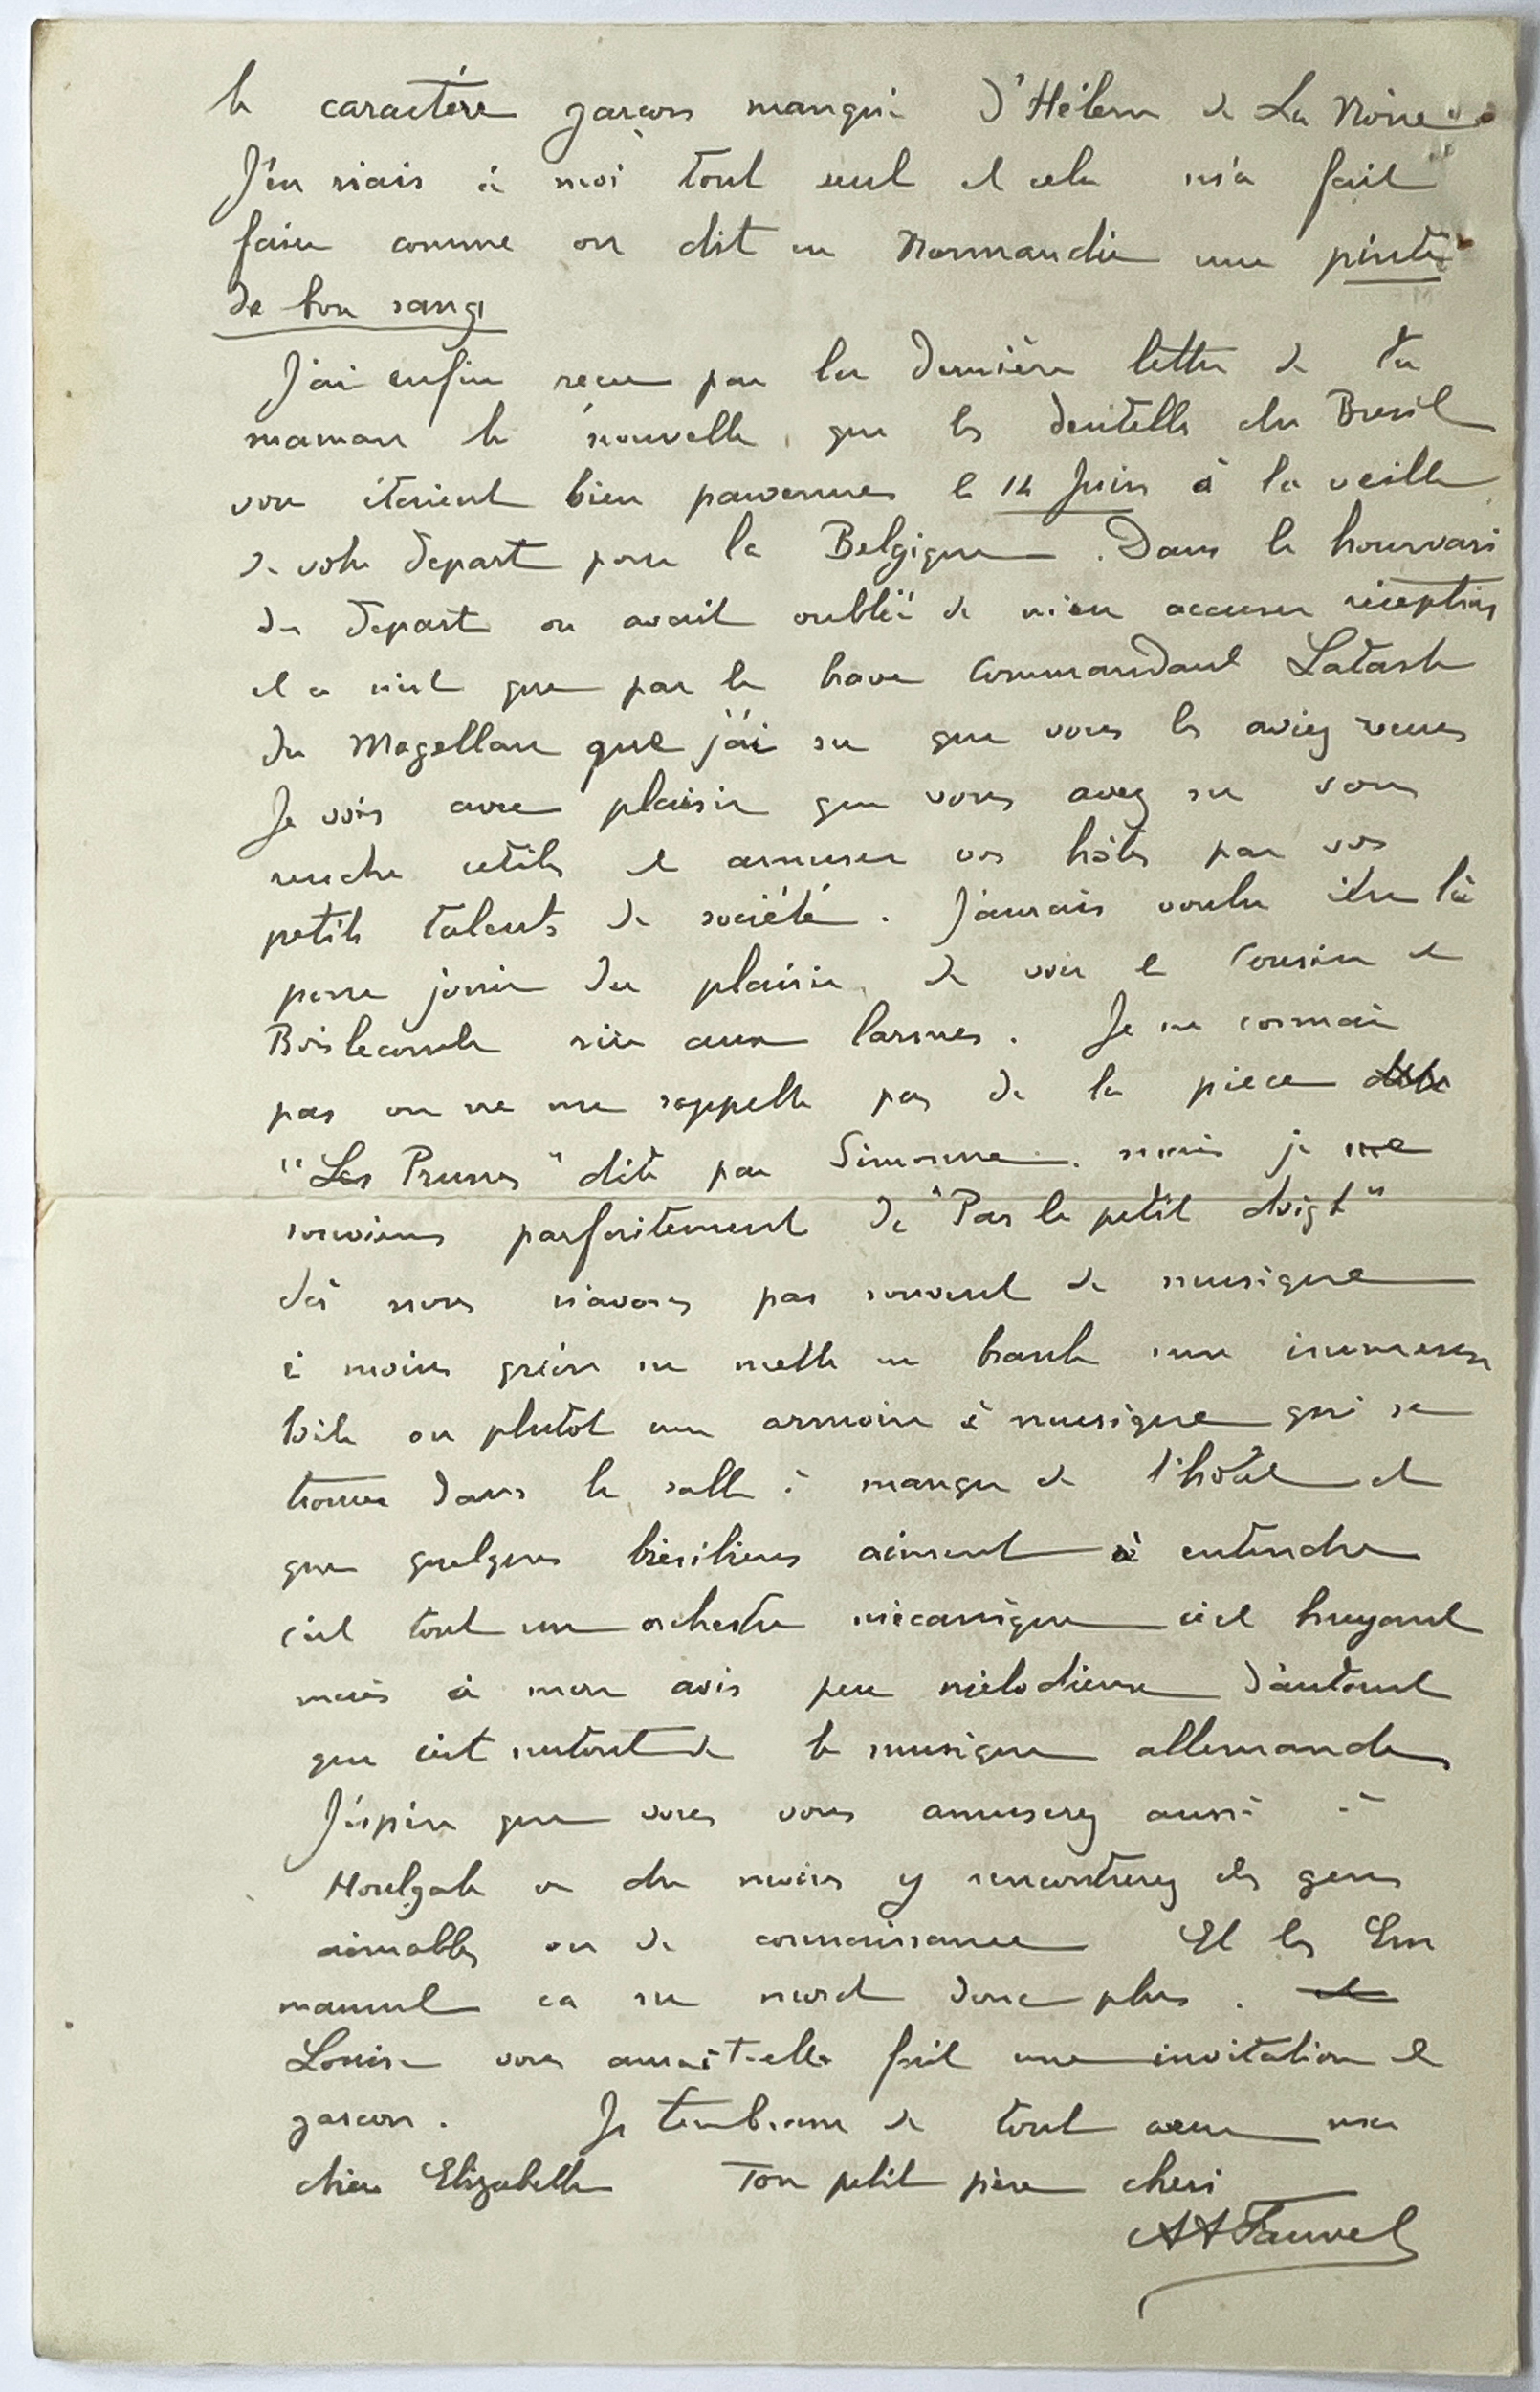 le caractère garçon manqué d'Hélène de La Noire
J'en riais à moi tout seul et cela m'a fait
faire comme on dit en Normandie une pinte
de bon sang
J'ai enfin reçu par la dernière lettre de ta
maman la nouvelle que les dentelles du Bresil
vous étaient bien parvenues le 14 Juin à la veille
de votre depart pour la Belgique. Dans le hourvari
du depart on avait oublié de m'en accuser réception
et ce n'est que par le brave Commandant
du Magellan que j'ai su que vous les aviez reçues
Je vois avec plaisir que vous avez su vous
rendre utiles et amuser vos hôtes par vos
petits talents de société. J'aurais voulu être là
pour jouir du plaisir de voir le Cousin de
Boislecomte rire aux larmes. Je ne connais
pas ou ne me rappelle pas de la piece
"Les Prunes" dite par Simonne. mais je me
souviens parfaitement de "Par le petit doigt"
Ici nous n'avons pas souvent de musique
à moins qu'on ne mette en branle une immense
boite ou plutôt une armoire à musique qui se
trouve dans la salle à manger de l'hôtel et
que quelques brésiliens aiment à entendre
c'est tout un orchestre mécanique c'est bruyant
mais à mon avis peu mélodieux d'autant
que c'est surtout de la musique allemande
J'espère que vous vous amuserez aussi à
Houlgate ou du moins y rencontrerez des gens
aimables ou de connaissance Et les Em
manuel ca ne mord donc plus. et
Louise vous aurait-elle fait une invitation de
garcon. Je t'embrasse de tout coeur ma
chère Elizabeth Ton petit père cheri
AAFauvel